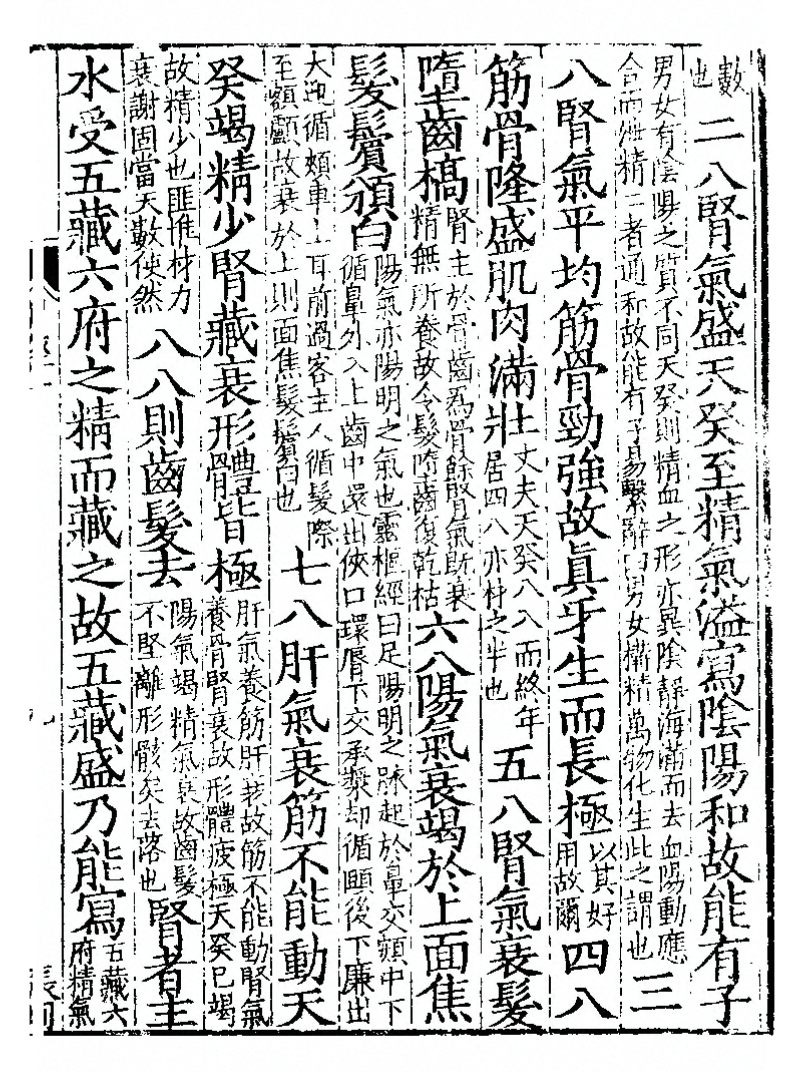 數也二八腎氣盛天癸至精氣溢寫陰陽和故能有子
男女有陰陽之質不同天癸則精血之形亦異陰靜海滿而去血陽動應
合而泄精二者通和故能有子易繫辭曰男女構精萬物化生此之謂也三
八腎氣平均筋骨勁強故眞牙生而長極以其好用故爾四八
筋骨隆盛肌肉滿壯丈夫天癸八八而終年居四八亦材之半也五八腎氣衰髮
墮齒槁腎主於骨齒為骨餘腎氣既衰精無所養故令髮墮齒復乾枯六八陽氣衰竭於上面焦
髮鬢頒白陽氣亦陽明之氣也靈樞經曰足陽明之脉起於鼻交頞中下循鼻外入上齒中還出俠口環脣下交承漿却循頤後下廉出
大迎循頰車上耳前過客主人循髮際至額顱故衰於上則面焦髮鬢白也七八肝氣衰筋不能動天
癸竭精少腎藏衰形體皆極肝氣養筋肝衰故筋不能動腎氣養骨腎衰故形體疲極天癸已竭
故精少也匪惟材力衰謝固當天數使然八八則齒髮去陽氣竭精氣衰故齒髮不堅離形骸矣去落也腎者主
水受五藏六府之精而藏之故五藏盛乃能寫五藏六府精氣